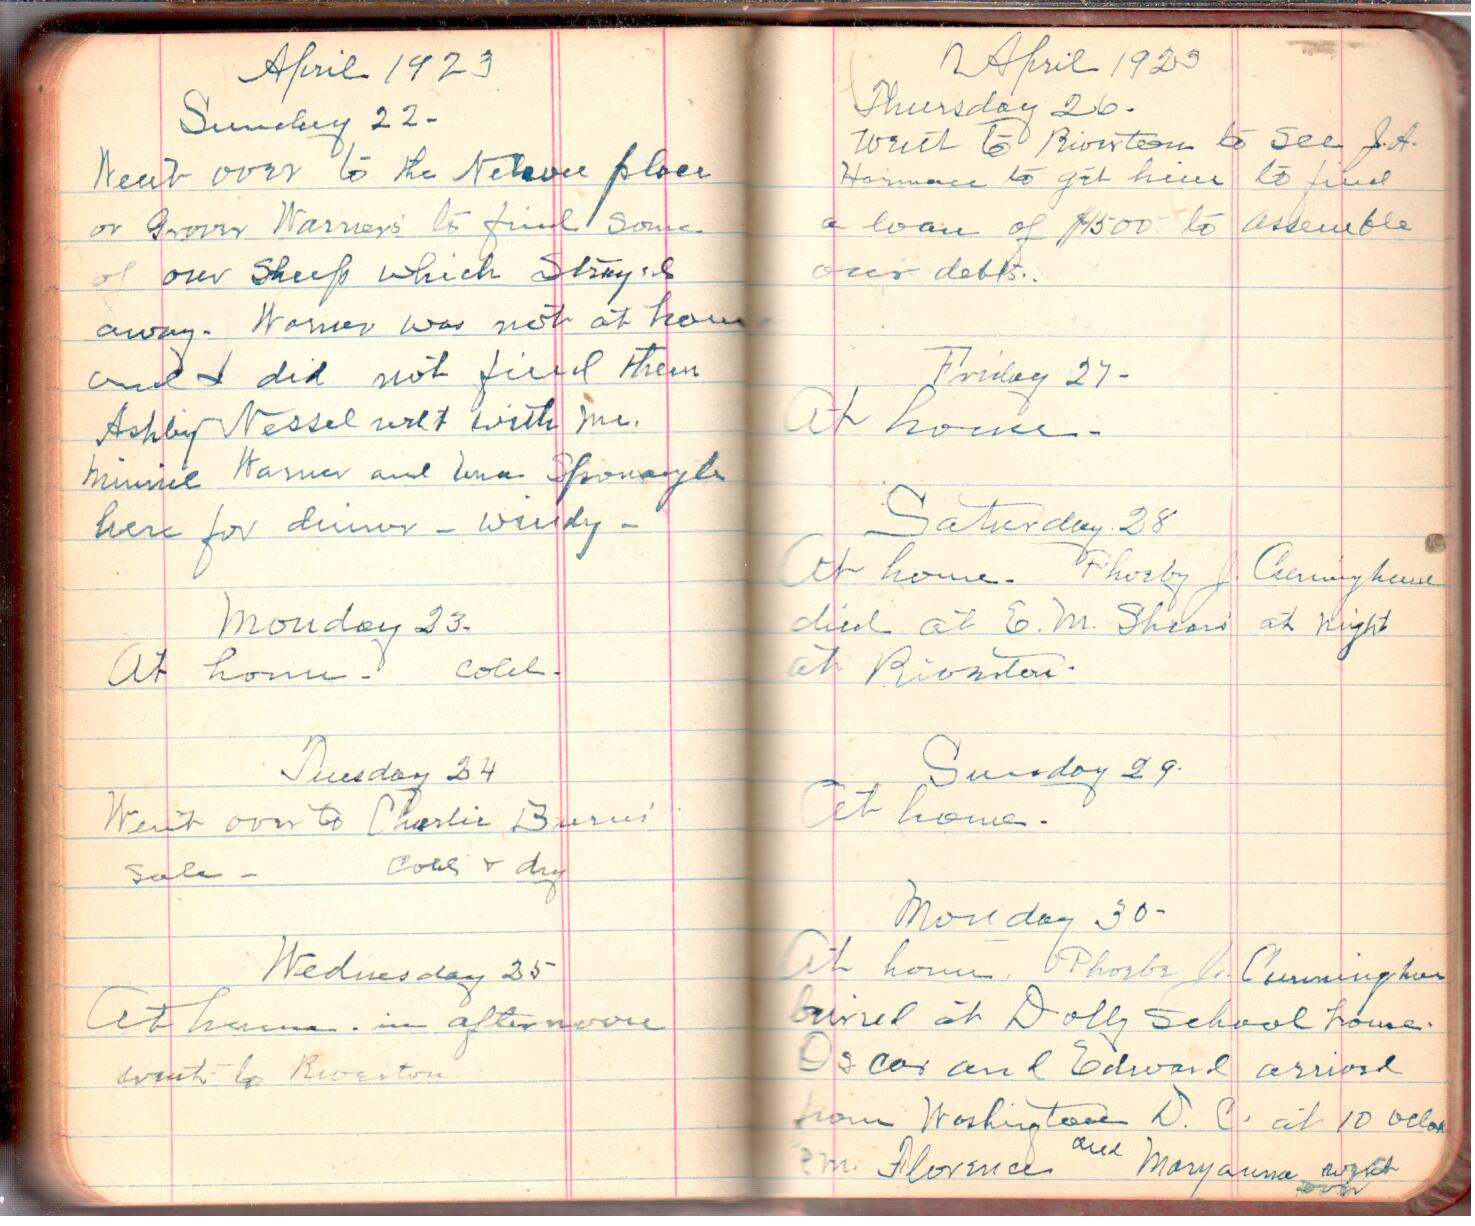 April 1923
Sunday 22-
Went over to the Nelson place
or Grover Warner's to find some
of our sheep which strayed
away. Warner was not at home
and I did not find them
Ashby Nessel went with me.
Minnie Warner and Una Sponaugle
here for dinner - windy -
Monday 23-
At home - cold-
Tuesday 24
Went over to Charlie Burns'
sale - cold & dry
Wednesday 25
At home. in afternoon
went to Riverton
April 1923
Thursday 26-
Went to Riverton to see J.A.
Harman to get him to find
a loan of $1500 to assemble
our debts.
Friday 27-
At home-
Saturday 28
At home- Phoeby J. Cunningham
died at E.M. at night
at Riverton.
Sunday 29.
At home-
Monday 30-
At home. Phoebe J. Cunningham
buried at Dolly School house.
Oscar and Edward arrived
from Washington D. C. at 10 oclock
P.M. Florence and Maryanna went
over